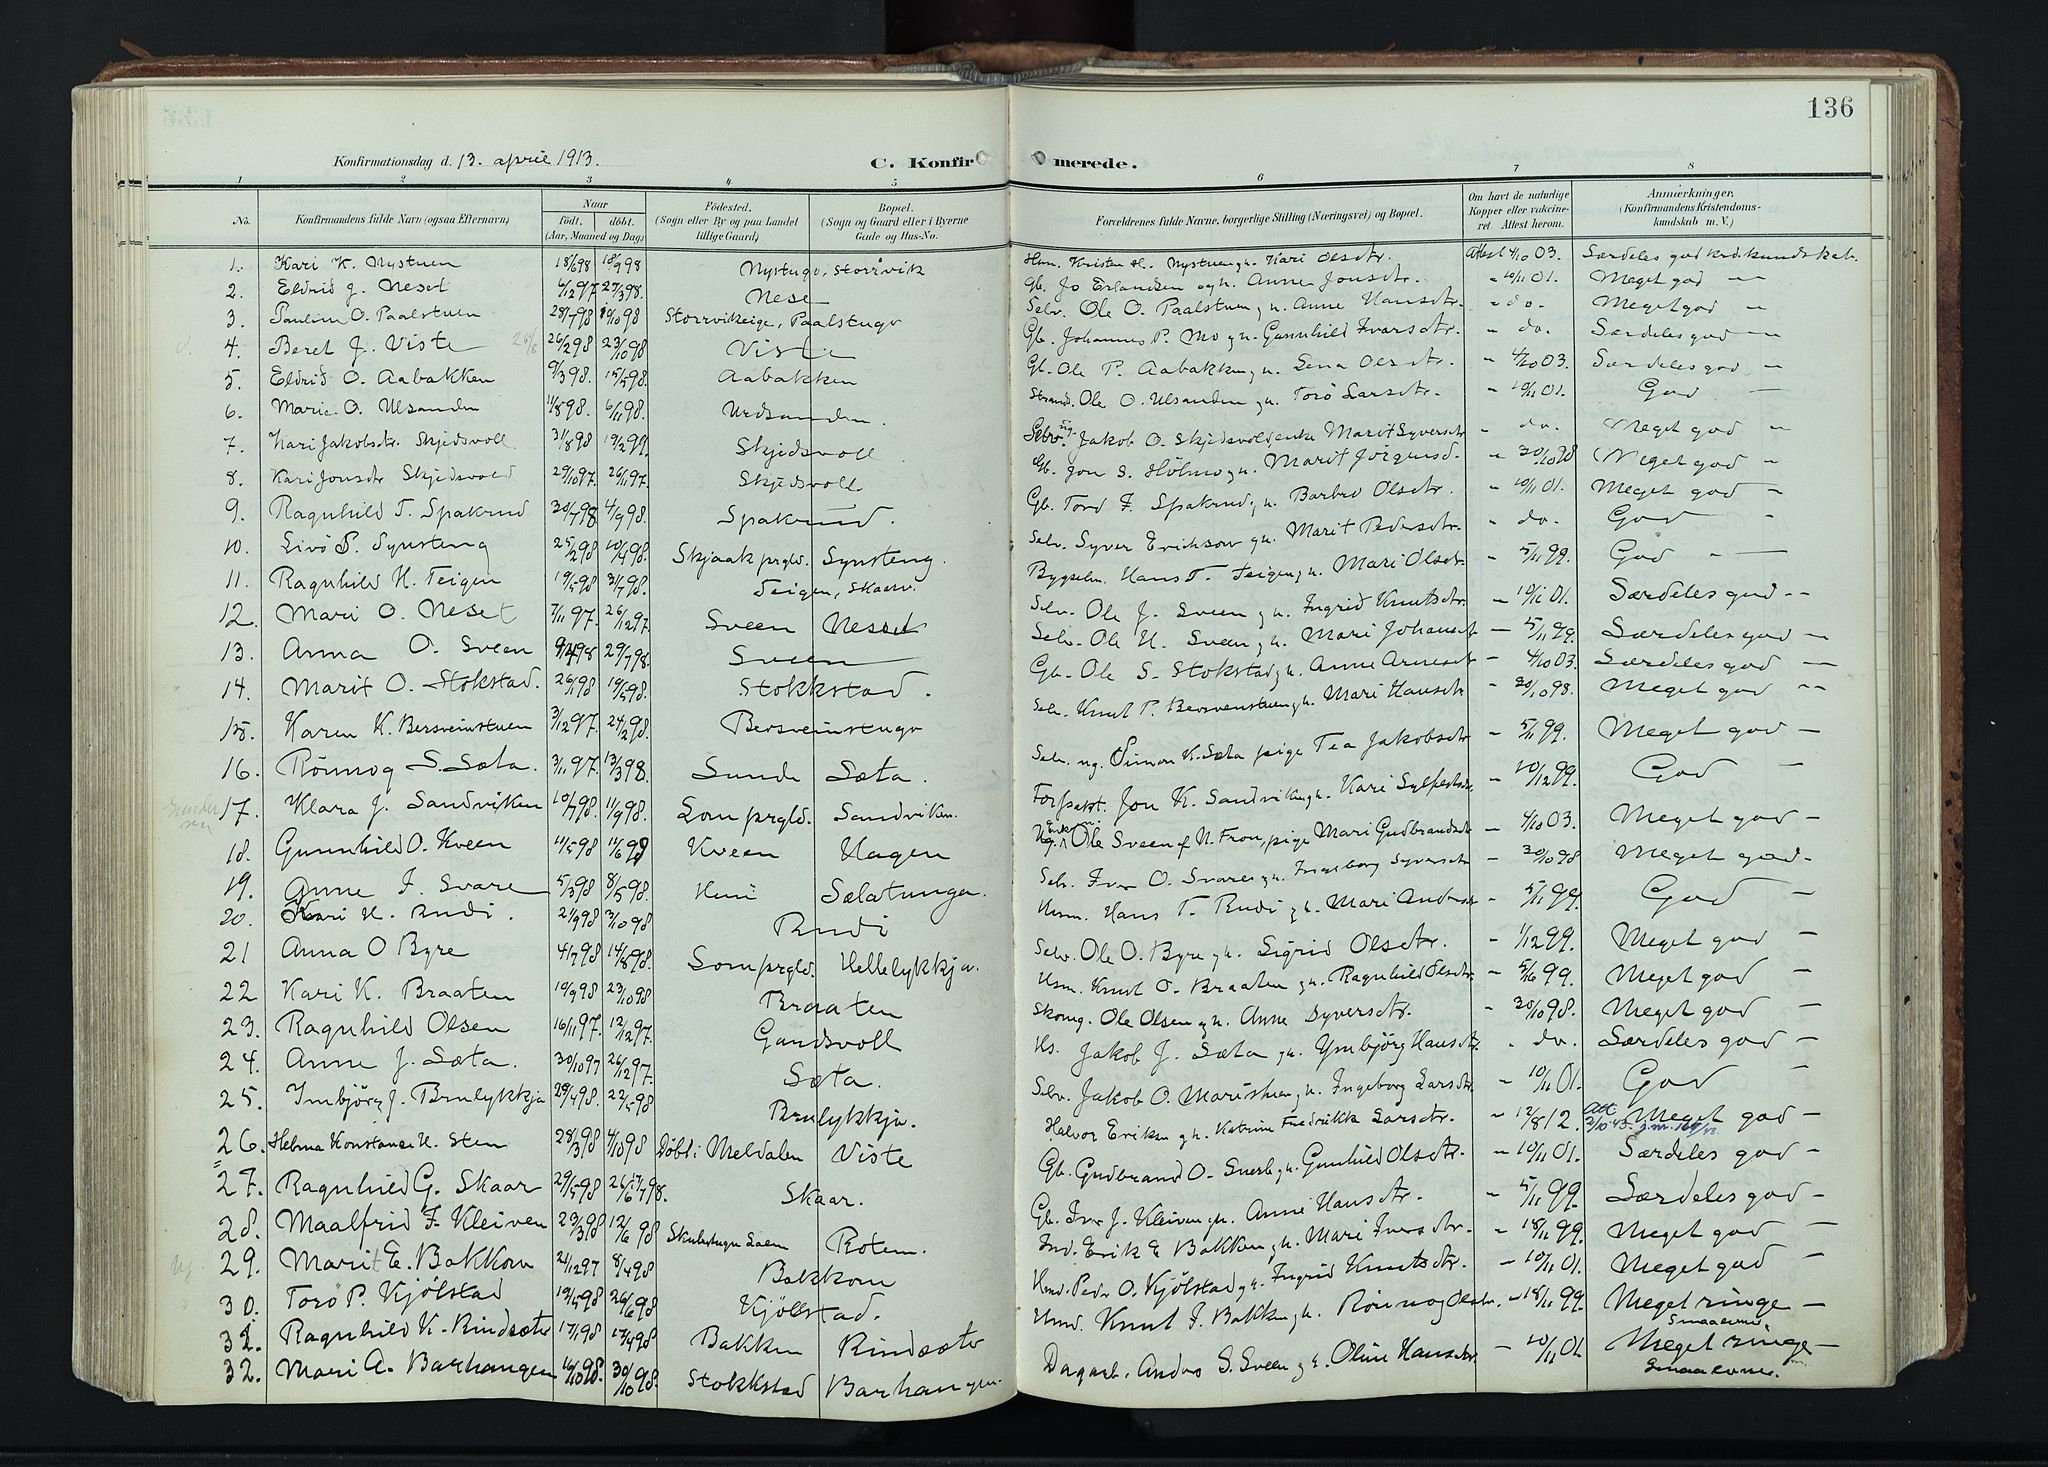 136
Konfirmationsdag d. 13. april 1913.
C. Konfirmerede.
1 2 3 4 5 6 7 8
No. Konfirmandens fulde Navn (ogsaa Efternavn) Naar født. døbt. (Aar, Maaned og Dag) Fødested. (Sogn eller By og paa Landet tillige Gaard) Bopæl. (Sogn og Gaard eller i Byerne Gade og Hus-No. Forældrenes fulde Navne, borgerlige Stilling (Næringsvei) og Bopæl. Om havt de naturlige Kopper eller vaccineret. Attest herom. Anmerkninger. (Konfirmandens Kristendomskundskab m. V.)
1. Kari K. Nystuen 18/6 98 18/9 98 Nystugo, Storrvik Hm. Kristen H. Nystuen g. h. Kari Olsdtr. Attest 4/10 03. Særdeles god krd.kundskab.
2. Eldrid J. Neset 6/12 97 27/3 98. Nese Gb. Jo Erlandsen og h. Anne Jonsdtr. " 10/11 01. Meget god "
3. Pauline O. Paalstuen 28/7 98 9/10 98 Storrvikeige, Paalstugo Selv. Ole O. Paalstuen g. h. Anne Hansdtr. " do. Meget god "
4. Beret J. Viste 26/2 98 23/10 98 Viste Gb. Johannes P. Mo g. h. Gunnhild Ivarsdtr. " do. Særdeles god "
5. Eldrid O. Aabakken 9/3 98. 15/5 98. Aabakken Gb. Ole P. Aabakken g. h. Lena Olsdtr. " 4/10 03. Særdeles god "
6. Marie O. Ulsanden 11/8 98. 6/11 98. Ulsanden. Strand. Ole O. Ulsanden g. h. Torø Larsdtr. " 10/11 01. God —
7. Kari Jakobsdtr. Skjedsvoll 31/8 98 19/2 99. Skjedsvoll Selv. Jakob O. Skjedsvold, enke Marit Syversdtr " do. Meget god "
8. Kari Jonsdtr Skjedsvold 29/10 97. 26/11 97. Skjedsvoll Gb. Jon S. Holmo g. h. Marit Jørgensd. " 30/10 98 Meget god "
9. Ragnhild T. Spakrud 30/7 98 4/9 98. Spakrud. Gb. Tord F. Spakrud g. h. Barbro Olsdtr. " 10/11 01. Meget god "
10. Livø S. Synsteng 25/2 98 10/4 98. Skjaak prgld. Synsteng. Selv. Syver Erichsen g. h. Marit Pedersdtr. " do. God "
11. Ragnhild H. Teigen 19/5 98 31/7 98. Teigen, Skaarv. Bygselm. Hans T. Teigen g. h. Mari Olsdtr. " 5/11 99. God " —
12. Mari O. Neset 7/11 97. 26/12 97. Sveen Nesset Selv. Ole J. Sveen g. h. Ingrid Knutsdtr. " 10/11 01. Særdeles god "
13. Anna O. Sveen 9/4 98 29/7 98. Sveen Selv. Ole H. Sveen g. h. Mari Johansdtr — 5/11 99. Særdeles god —
14. Marit O. Stokstad. 26/1 98 19/5 98. Stokkstad. Gb. Ole S. Stokstad g. h. Anne Arnesdtr — 4/10 03. Særdeles god —
15. Karen K. Bersveinstuen 3/12 97. 24/2 98. Bersveinstugo Selv. Knut P. Bersvenstuen g. h. Mari Hansdtr " 30/10 98. Meget god "
16. Rønnog S. Sæta. 3/11 97. 13/3 98. Sunde Sæta. Selv. ug. Simon K. Sæta pige Tea Jakobsdtr — 5/11 99. Meget god —
17. Klara J. Sandviken 10/7 98. 11/9 98. Lom prgld. Sandviken. Forpakt. Jon K. Sandviken g. h. Kari Sylfestsdtr " 10/12 99. God —
18. Gunnhild O. Kveen 11/5 98 11/6 99 Kveen Hagen Ole Sveen af N. Fron, pige Mari Gudbrandsdtr — 4/10 03. Meget god —
19. Anne I. Svare 5/3 98 8/5 98. Selatunga. Selv. Iver O. Svare g. h. Ingeborg Syversdtr — 30/10 98 Meget god —
20. Kari H. Rudi. 2/9 98 3/10 98 Rudi Husm. Hans T. Rudi g. h. Mari Andersdtr " 5/11 99. God —
21 Anna O Byre 4/7 98 14/8 98. Lom prgld. Hellelykkja. Selv. Ole O. Byre g. h. Sigrid Olsdtr. " 1/12 99. Meget god —
22 Kari K. Braaten 19/9 98 23/10 98 Braaten Husm. Knut O. Braaten g. h. Ragnhild Olsdtr — 5/6 99. Meget god —
23. Ragnhild Olsen 16/11 97. 12/12 97. Gandsvoll Skomg. Ole Olsen g. h. Anne Syversdtr. " 30/10 98. Meget god —
24. Anne J. Sæta. 30/10 97 26/12 97. Sæta. Hs. Jakob J. Sæta g. h. Ymbjørg Hansdtr. " do. Særdeles god —
25. Imbjörg J. Brulykkja 29/4 98. 22/5 98 Brulykkja. Selv. Jakob O. Maristuen g. h. Ingeborg Larsdtr. — 10/11 01. God —
26. Helma Konstanse H. Sten 28/3 98 4/10 98 Døbt i Meldalen Viste Halvor Eriksen g. h. Katrine Fredrikke Larsdtr. " 12/8 12. Att 2/10 43. Meget god —
27. Ragnhild G. Skaar 29/5 98 26/6 98. Skaar. Gb. Gudbrand O. Suerb g. h. Gunhild Olsdtr. — 10/11 01. Særdeles god —
28. Maalfrid I. Kleiven 23/3 98 12/6 98 Rotem. Gb. Iver J. Kleiven g. h. Anne Hansdtr. " 5/11 99. Særdeles god —
29. Marit E. Bakkom 21/12 97 8/4 98 Bakkom Ind. Erik E Bakken g. h. Mari Iversdtr. — 18/11 99. Meget god —
30. Torø P. Kjølstad 19/5 98 26/6 98 Kjøllstad. Hmd. Peder O. Kjølstad g. h. Ingrid Knutsdtr. — 10/11 01. Meget god —
32. Ragnhild K. Rindsæter 17/1 98 17/4 98 Bakken Rindsæter Husmd. Knut I. Bakken g. h. Rønnog Olsdtr. — 18/11 99. Meget ringe — Smaaevner
32. Mari A. Barhaugen 16/10 98. 30/10 98. Stokkstad Barhaugen. Dagarb. Andro S. Sveen g. h. Oline Hansdtr. — 10/11 01. Meget ringe — Smaaevner.